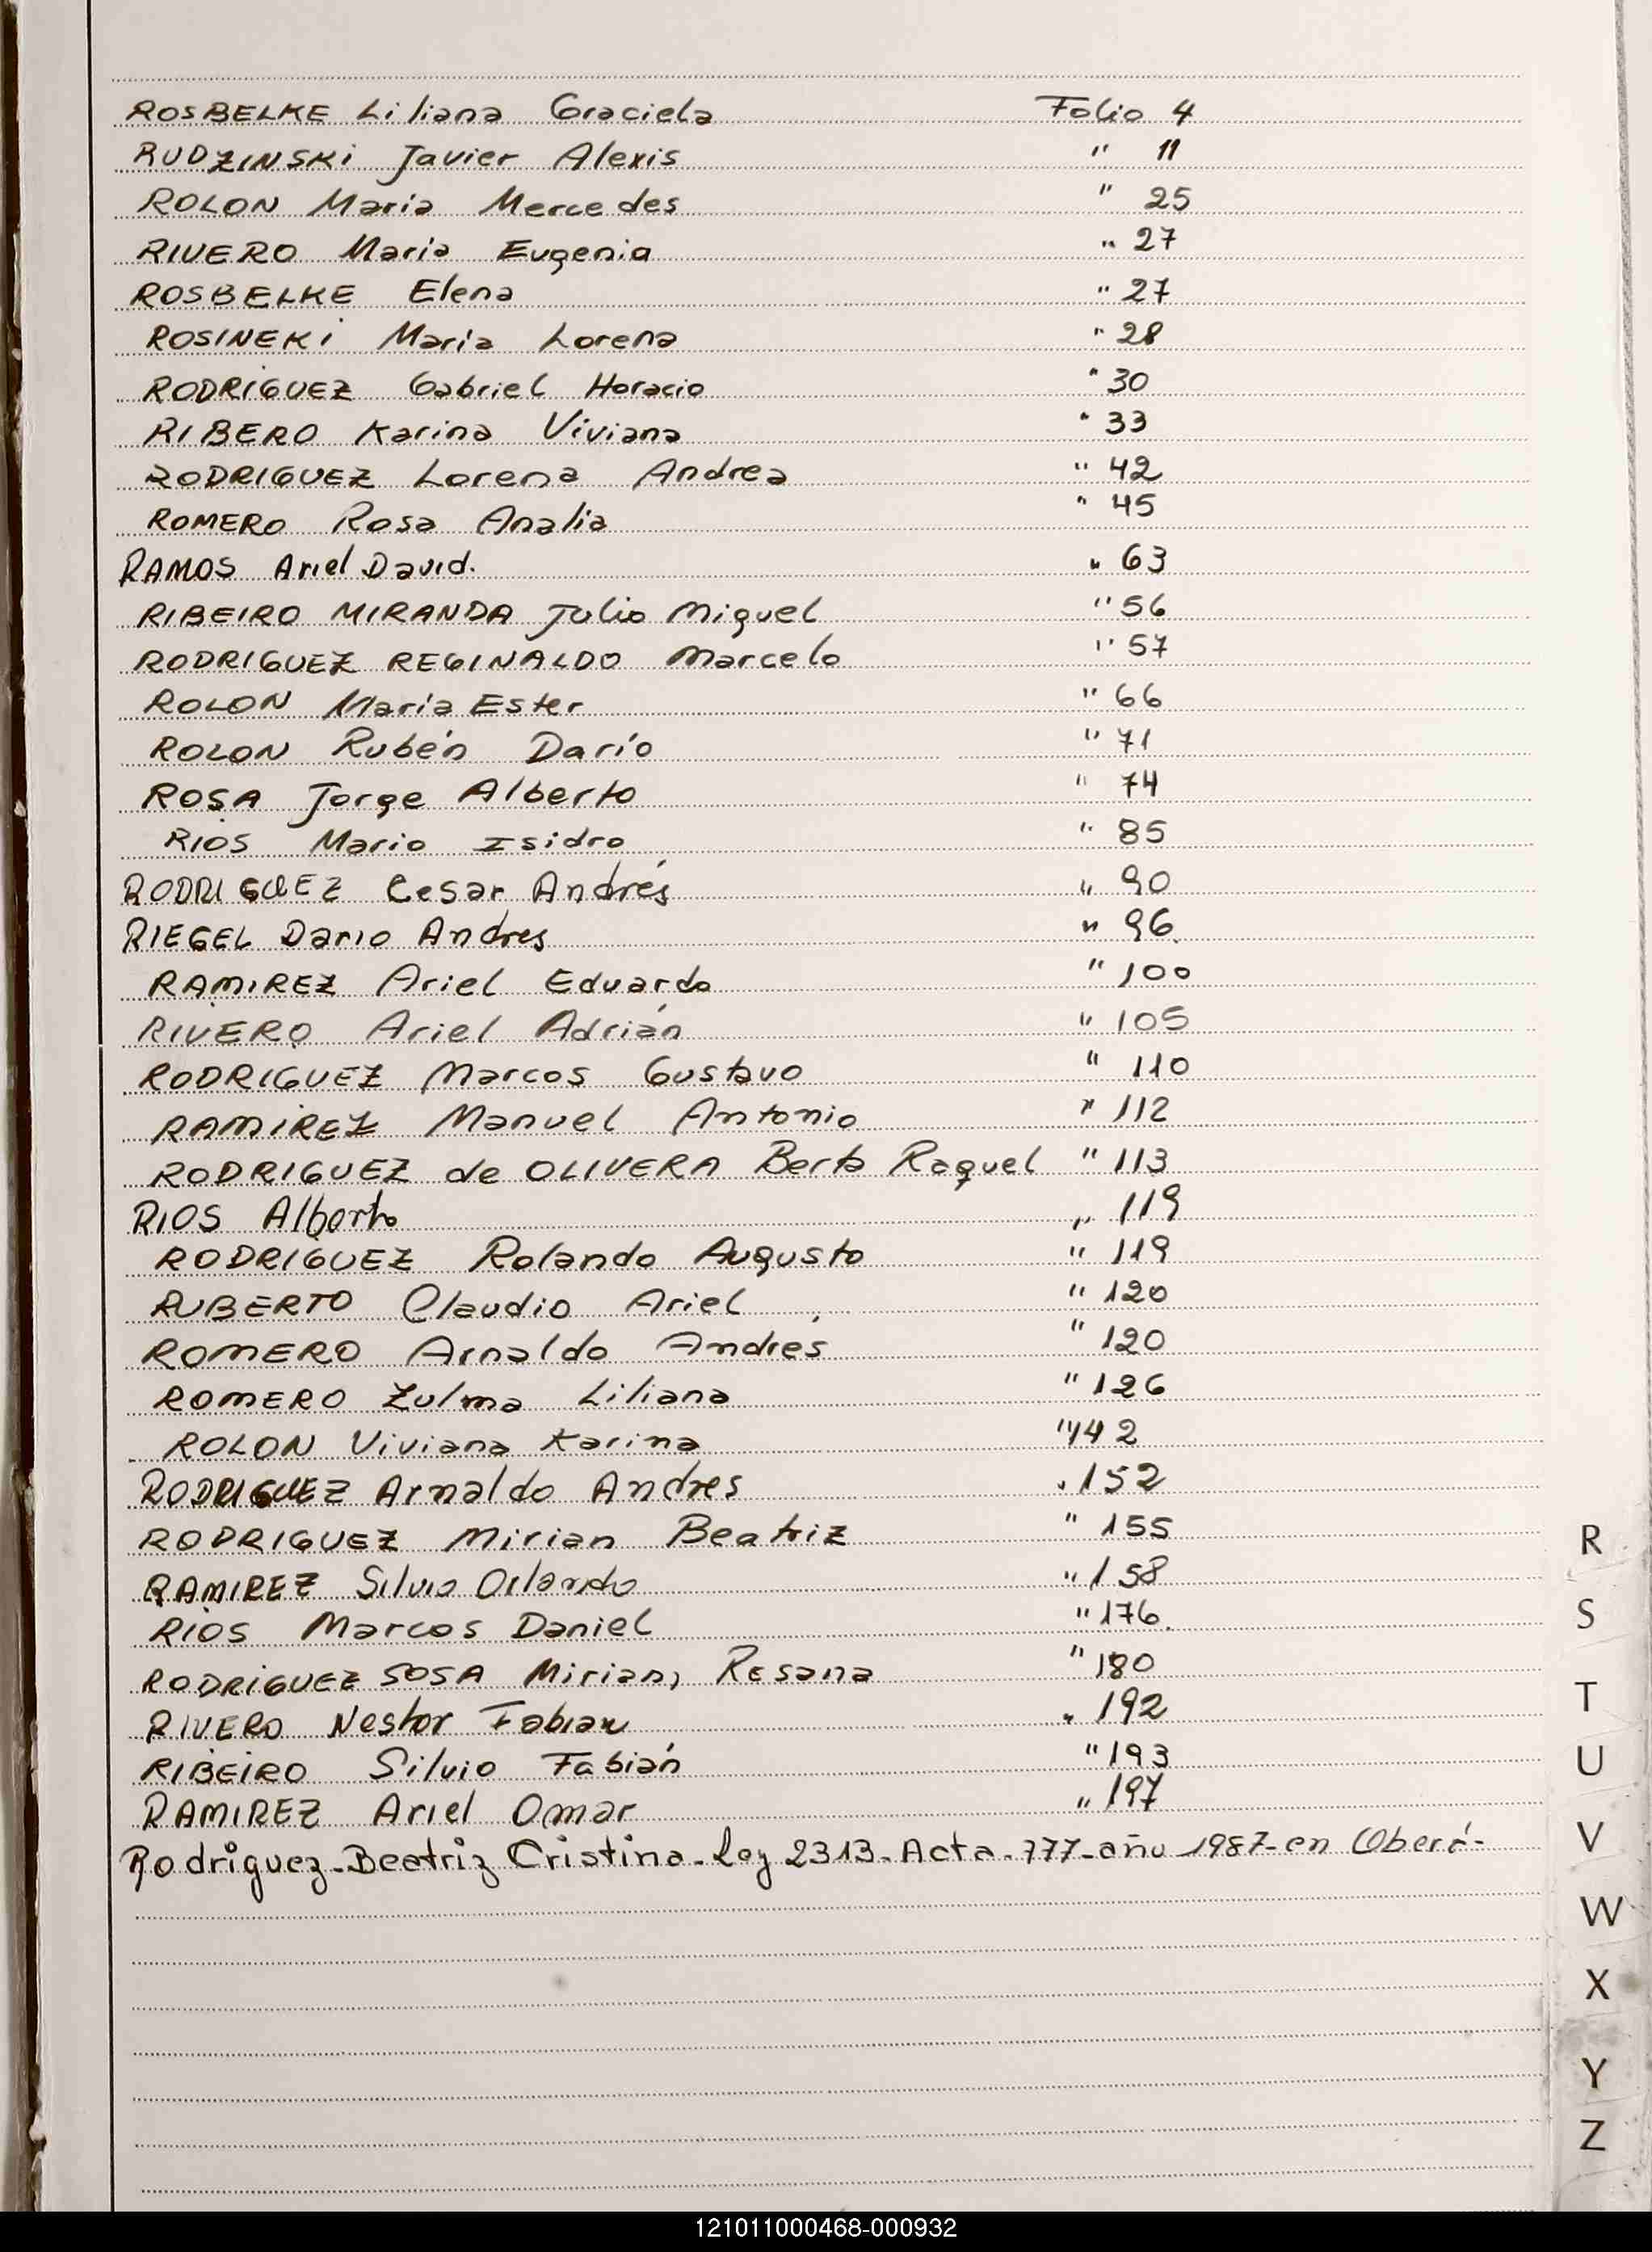 ROSBELKE Liliana Graciela Folio 4
RUDZINSKi Javier Alexis " 11
ROLON Maria Mercedes " 25
RIVERO Maria Eugenia " 27
ROSBELKE Elena " 27
ROSINEKi Maria Lorena " 28
RODRIGUEZ Gabriel Horacio " 30
RIBERO Karina Viviana " 33
RODRIGUEZ Lorena Andrea " 42
ROMERO Rosa Analia " 45
RAMOS Ariel David. " 63
RIBEIRO MIRANDA Julio Miguel " 56
RODRIGUEZ REGINALDO Marcelo " 57
ROLON María Ester " 66
ROLON Rubén Darío " 71
ROSA Jorge Alberto " 74
RIOS Mario Isidro " 85
RODRIGUEZ Cesar Andrés " 90
RIEGEL Dario Andres " 96.
RAMIREZ Ariel Eduardo " 100
RIVERO Ariel Adrián " 105
RODRIGUEZ Marcos Gustavo " 110
RAMIREZ Manuel Antonio " 112
RODRIGUEZ de OLIVERA Berta Raquel " 113
RIOS Alberto " 119
RODRIGUEZ Rolando Augusto " 119
RUBERTO Claudio Ariel " 120
ROMERO Arnaldo Andrés " 120
ROMERO Zulma Liliana " 126
ROLON Viviana Karina " 142
RODRIGUEZ Arnaldo Andres " 152
RODRIGUEZ Mirian Beatriz " 155
RAMIREZ Silvio Orlando " 158
RIOS Marcos Daniel " 176.
RODRIGUEZ SOSA Mirian, Rosana " 180
RIVERO Nestor Fabian " 192
RIBEIRO Silvio Fabián " 193
RAMIREZ Ariel Omar " 197
Rodriguez-Beatriz Cristina-Ley 2313-Acta-777-año 1987-en Oberá-
R
S
T
U
V
W
X
Y
Z
121011000468-000932